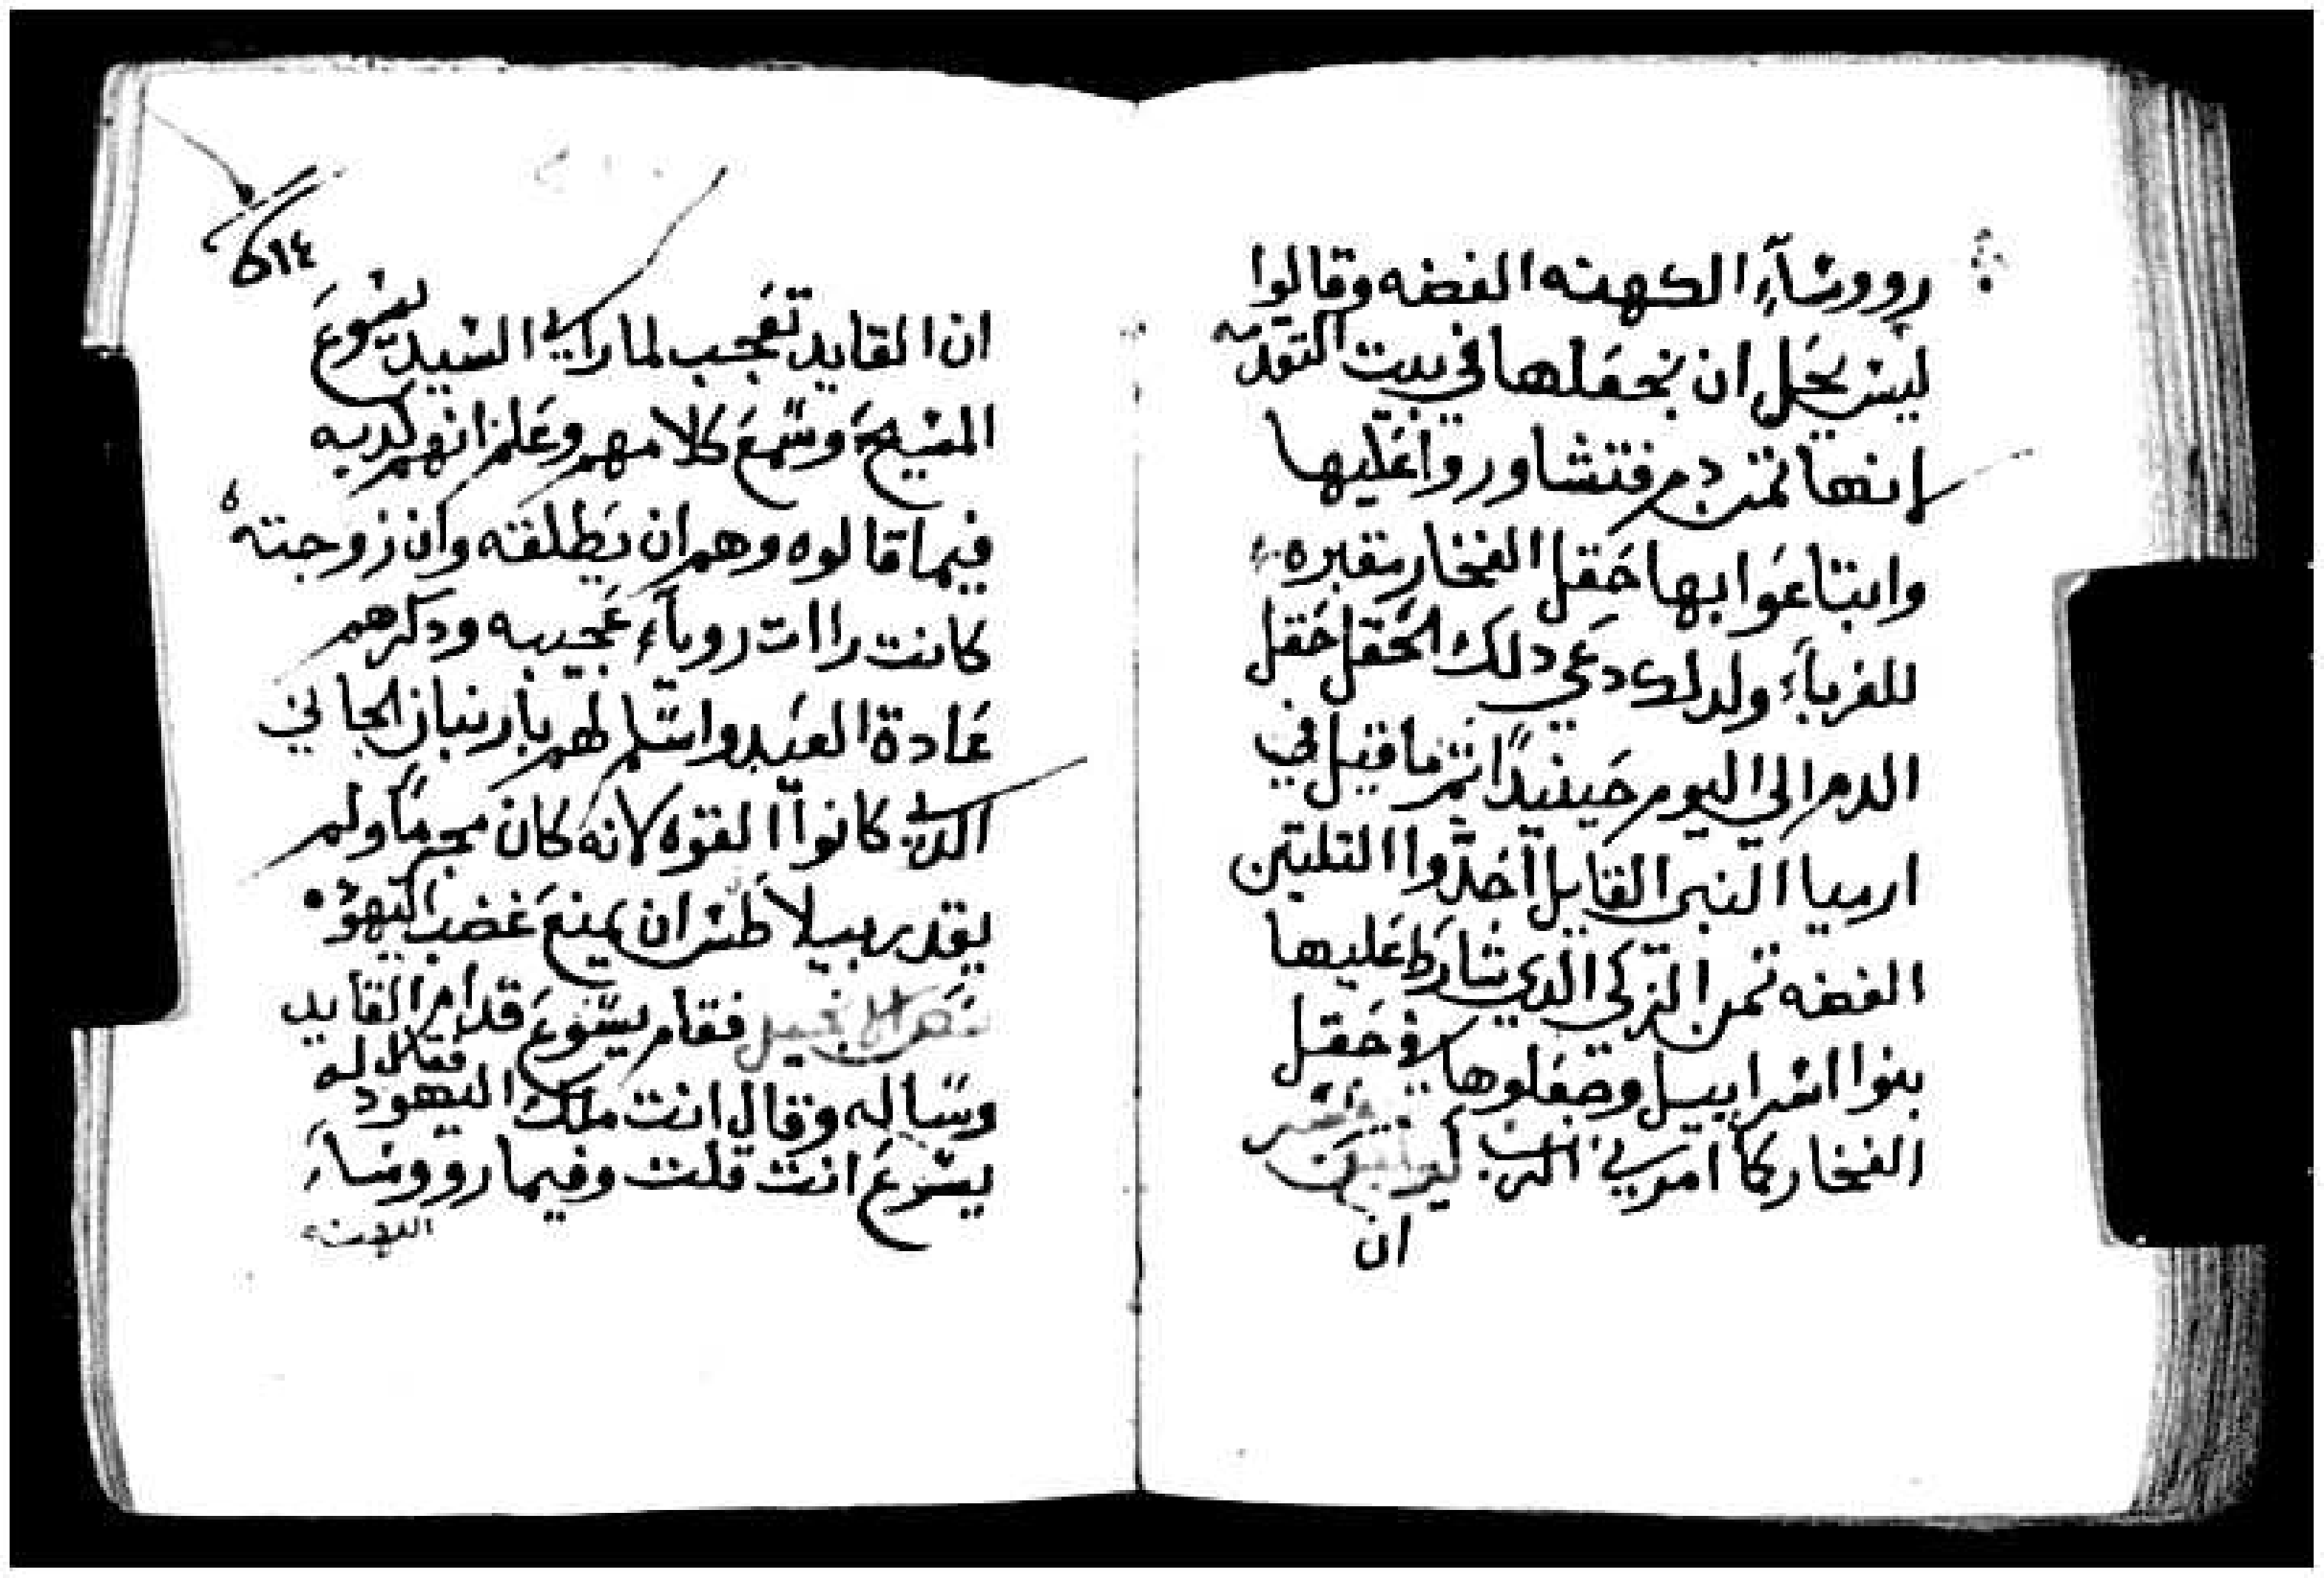 رووسآء الكهنه الفضه وقالوا
ليس يحل ان نجعلها في بيت التقدمه
انها تمن دم فتشاوروا عليها
وابتاعوا بها حقل الفخار مقبره
للغرباء ولدلك دعي دلك الحقل حقل
الدم الي اليوم حينيدًا تم ما قيل في
ارميا النبي القايل اخدوا التلتين
الفضه تمن الزكي الدي شارط عليها
بنوا اسراييل وجعلوها في حقل
الفخار كما امرني الرب
ان
٦١٤
ان القايد تعجب لما راي السيد يسوع
المسيح وسمع كلامهم وعلم انهم كدبه
فيما قالوه وهم ان يطلقه وان زوجته
كانت راات روياء عجيبه ودكرهم
عادة العيد واسلم لهم بارنبان الجاني
الدي كانوا القوه لانه كان مجرمًا ولم
يقدر بيلاطس ان يمنع غضب اليهود
نص الانجيل فقام يسوع قدام القايد
وساله وقال انت ملك اليهود فقال له
يسوع انت قلت وفيما رووسا
الكهنه